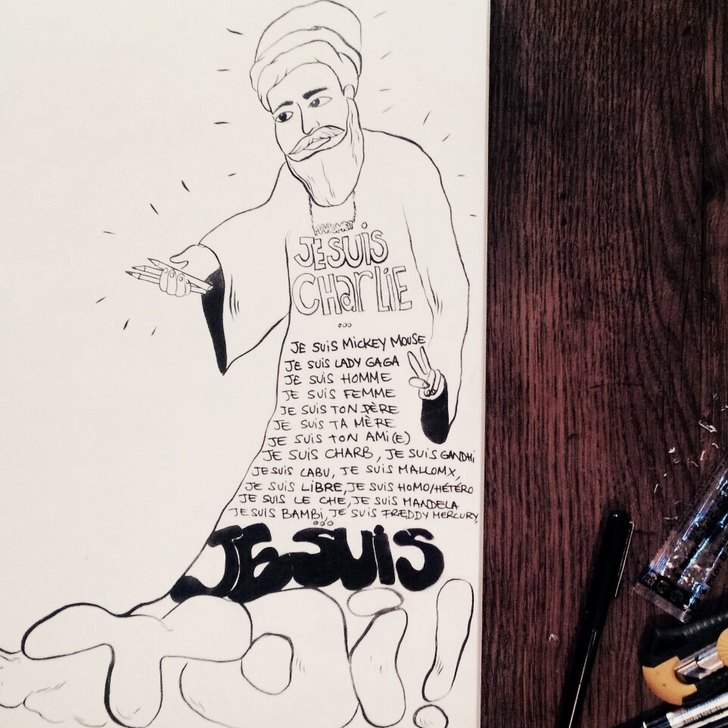 MAHOMET
JE SUIS
CHARLIE
...
JE SUIS MICKEY MOUSE
JE SUIS LADY GAGA
JE SUIS HOMME
JE SUIS FEMME
JE SUIS TON PÈRE
JE SUIS TA MÈRE
JE SUIS TON AMI(E)
JE SUIS CHARB, JE SUIS GANDHI
JE SUIS CABU, JE SUIS MALLOMX,
JE SUIS LIBRE, JE SUIS HOMO/HÉTÉRO
JE SUIS LE CHE, JE SUIS MANDELA
JE SUIS BAMBI, JE SUIS FREDDY MERCURY,
...
JE SUIS
TOI!!